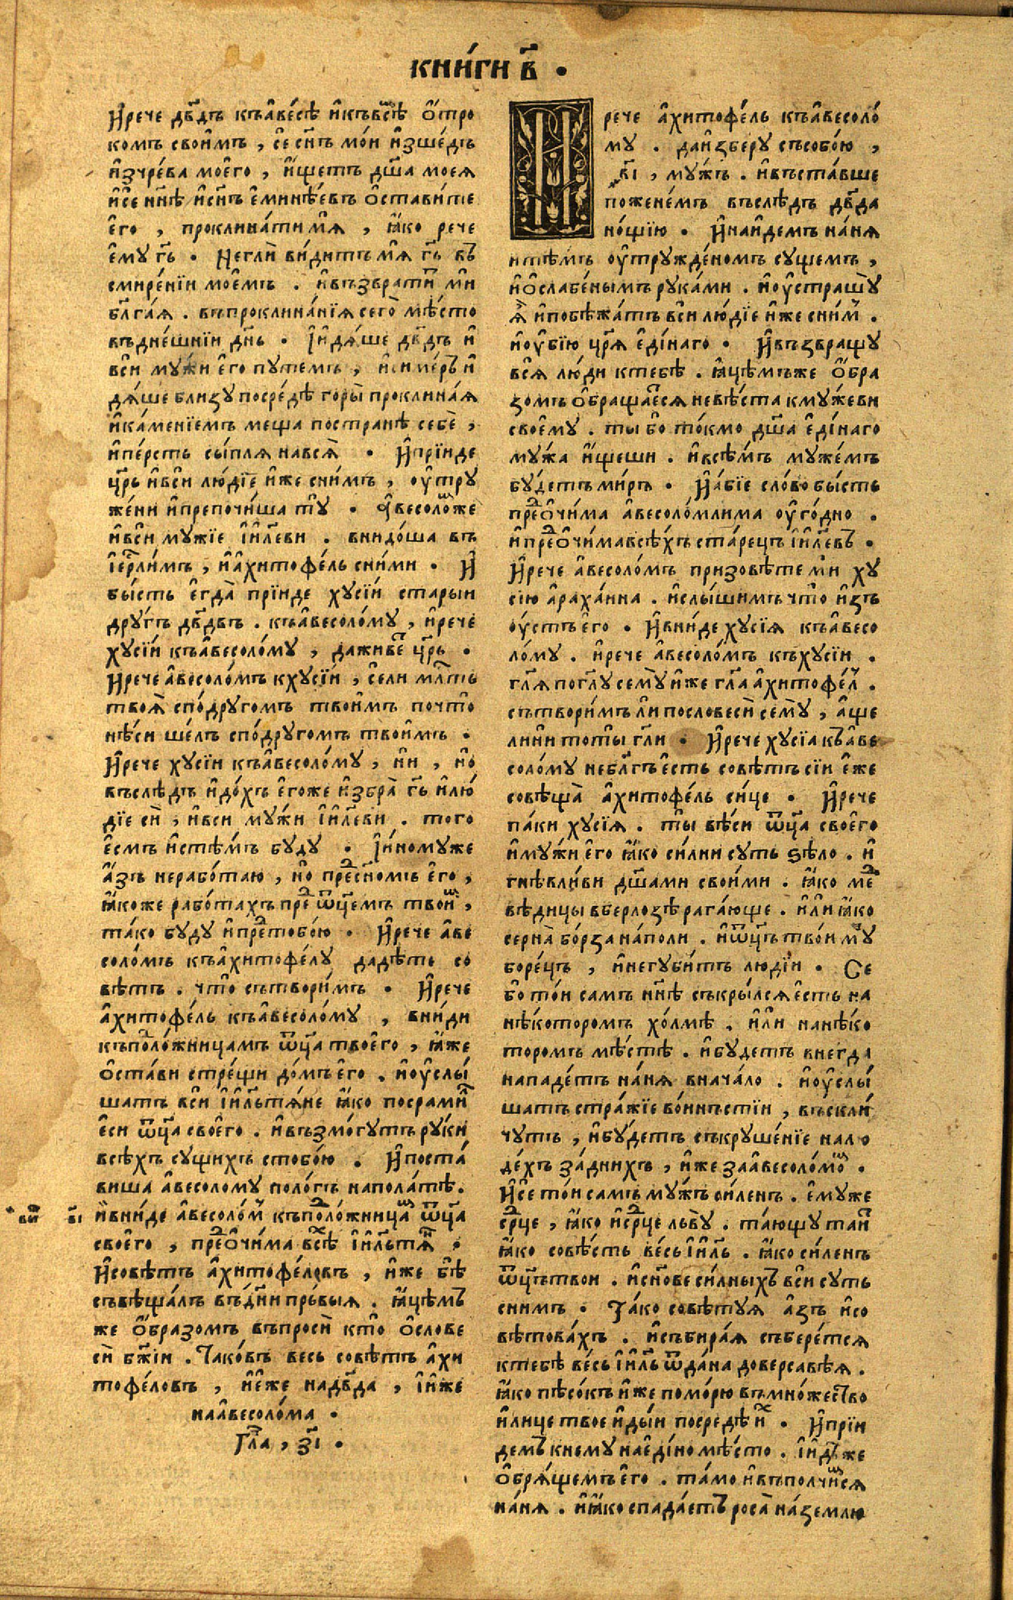 книги в҃ .
И҆рече дв҃дъ къа҆ве́сѣ и҆къвсѣ о҆́тро
комъ свои̑мъ , се сн҃ъ мо́и и҆зше́дъ
и҆зчре́ва моего̀ , и҆́щетъ дш҃а моея
и҆се нн҃ѣ и҆сн҃ъ е҆мине́евъ о҆ста́вите
его , проклина́ти мѧ̀ , ꙗ҆́ко рече
е҆му гь҃ . Негли ви́дитъ мѧ̀ гь҃ въ
смире́нїи мое́мъ . и҆въз̾врати́ ми
бл҃га́ѧ . въпроклина́нїѧ сего мѣ́сто
въдне́шнїи дн҃ь . И҆идѧ́ше дв҃дъ и҆
вси му́жи е҆го путемъ ,
дѧ́ше близу посре́дѣ горы̀ проклина́ѧ
и҆ка́менїемъ меща постранѣ̀ себѐ ,
и҆пе́рсть сы́плѧ навсѧ̀ . И҆прїи́де
цр҃ь и҆вси лю́дїе и҆́же сни́мъ , оу҆тру
же́ни и҆препочи́ша тꙋ̀ . А҆весоло́мже
и҆вси му́жїе і҆и҃леви . внидо́ша въ
і҆ер҇лимъ , и҆а҆хитофе́ль сни́ми . И҆
бы́сть е҆гда̀ прїи́де хусі́и ста́рыи
дру́гъ дв҃двъ . къа҆весоло́му , и҆рече
хусі́и къа҆весоло́му , да живе́ цр҃ь .
И҆рече а҆весоло́мъ кхусі́и , се ли мл҇ть
твоѧ̀ спо́другомъ твои́мъ почто̀
нѣ́си ше́лъ спо́другомъ твои́мъ .
И҆рече хусі́и къа҆весоло́му , ни , но̀
въслѣ́дъ и҆до́хъ е҆го́же и҆збра̀ гь҃ и҆лю́
дїе сѝ , и҆вси му́жи і҆и҃леви . того
е҆смъ и҆стѣ́мъ бу́ду . И҆и҆ному́же
а҆́зъ нерабо́таю , но̀ пред̾сы́номъ е҆го̀ ,
ꙗ҆́коже рабо́тахъ пред̾ ѿц҃емъ твои́м ,
та́ко буду и҆пред̾тобо́ю . И҆рече а҆ве
соло́мъ къа҆хитофе́лу дади́ть со
вѣ́тъ . что̀ сътвори́мъ . И҆рече
а҆хитофе́ль къа҆весоло́му , вни́ди
къполо́жницамъ ѿц҃а твоего̀ , ꙗ҆́же
о҆ста́ви стрещѝ до́мъ е҆го . и҆оу҆слы́
шатъ вси і҆и҃льтѧ́не ꙗ҆́ко посрами́л
е҆си ѿц҃а своего . и҆възмо́гутъ ру́ки
всѣ́хъ су́щихъ стобо́ю . И҆поста́
виша а҆весолому поло́гъ напола́тѣ .
и҆вни́де а҆весоло́м къполо́жницам ѿц҃а
своего , пред̾о҆чи́ма всѣ́х і҆и҃льтѧ́н .
И҆совѣ́тъ а҆хитофе́ловъ , и҆́же бѣ̀
съвѣща́лъ въдни пръвыѧ . ꙗ҆́цѣмъ
же о҆́бразомъ въпроси́ кто̀ о҆слове
си́ бж҃їи . Тако́въ весь совѣ́тъ а҆хи
тофе́ловъ , и҆е҆же надв҃да , и҆и҆же
наа҆весоло́ма .
Гла҃ , з҃і .
в҃і
рече а҆хитофе́ль къа҆весоло́
му . да и҆зберу съсобо́ю ,
в҃і , му́жъ . и҆въста́вше
пожене́мъ въслѣ́дъ дв҃да
но́щїю . И҆наи́демъ на́нѧ
итѣ́мъ оу҆тружде́номъ су́щемъ ,
и҆о҆слабе́нымъ рука́ми . и҆оу҆страшу́
ѧ҆̀ и҆побѣжа́тъ вси лю́дїе и҆́же сни́м .
и҆оу҆бі́ю цр҃ѧ е҆ди́наго . И҆възвращу
всѧ лю́ди ктебѣ̀ . ꙗ҆́цѣмъже о҆́бра
зомъ о҆браща́етсѧ невѣ́ста кму́жеви
своему . ты бо то́кмо дш҃а е҆ди́наго
му́жа и҆́щеши . и҆всѣ́мъ муже́мъ
бу́детъ ми́ръ . И҆а҆́бїе сло́во бы́сть
пред̾о҆чи́ма а҆весоло́млима оу҆го́дно .
и҆пред̾о҆чи́ма всѣ́хъ ста́рецъ і҆и҃левъ .
И҆рече а҆весоло́мъ призовѣ́те ми ху
сі́ю а҆раха́нина . и҆слы́шимъ что̀ и҆зъ
оу҆́стъ е҆го . И҆вни́де хусі́ѧ къа҆весо
ло́му . и҆рече а҆весоло́мъ къхусі́и .
гл҃ѧ погл҃у сему̀ и҆́же гл҃а а҆хитофе́л .
сътвори́мъ ли пословеси сему̀ , а҆́ще
ли ни то ты̀ гл҃и . И҆рече хусі́а къа҆ве
соло́му небл҃гъ е҆сть совѣ́тъ сїи е҆́же
совѣща̀ а҆хитофе́ль си́це . И҆рече
па́ки хусі́ѧ . ты̀ вѣ́си ѿц҃а своего
и҆му́жи е҆го ꙗ҆́ко си́лни суть ѕѣло̀ . и҆
гнѣвли́ви дш҃ами свои́ми . ꙗ҆́ко ме
вѣ́дицы вберло́зѣ рага́юще . и҆ли ꙗ҆́ко
серна̀ бо́рза на́поли . и҆ѿц҃ъ тво́и му́ж
боре́цъ , и҆негуби́тъ люді́и . Се
бо то́и самъ нн҃ѣ съкры́лсѧ е҆сть на
нѣ́которомъ хо́лмѣ . и҆ли нанѣ́ко
торомъ мѣ́стѣ . и҆бу́детъ внегда
нападе́тъ на́нѧ внача́ло . и҆оу҆слы́
шатъ стра́жїе во́инъстїи , въскли́
чутъ , и҆бу́детъ съкруше́нїе налю
де́хъ за́днихъ , и҆́же заа҆весоло́мом .
И҆се то́и самъ му́жъ си́ленъ . е҆му́же
ср҃це , ꙗ҆́ко и҆ср҃це льву . та́ющу та́и
ꙗ҆́ко совѣ́сть ве́сь і҆и҃ль . ꙗ҆́ко си́ленъ
ѿц҃ъ твои . и҆сн҃ове си́лныхъ вси суть
снимъ . Та́ко совѣ́туѧ а҆́зъ и҆со
вѣ́товахъ . и҆събира́ѧ събере́тсѧ
ктебѣ̀ весь і҆и҃ль ѿда́на доверсаве́ѧ .
ꙗ҆́ко пѣсо́къ и҆́же помо́рю въмно́жество
и҆лице твое и҆ды́и посреде́ и҆х . И҆прїи́
демъ кнему нае҆ди́но мѣ́сто . и҆дѣ́же
о҆брѧ́щемъ е҆го . та́мо и҆въполчи́мсѧ
на́нѧ . и҆ꙗ҆́ко спада́етъ роса̀ на́землю